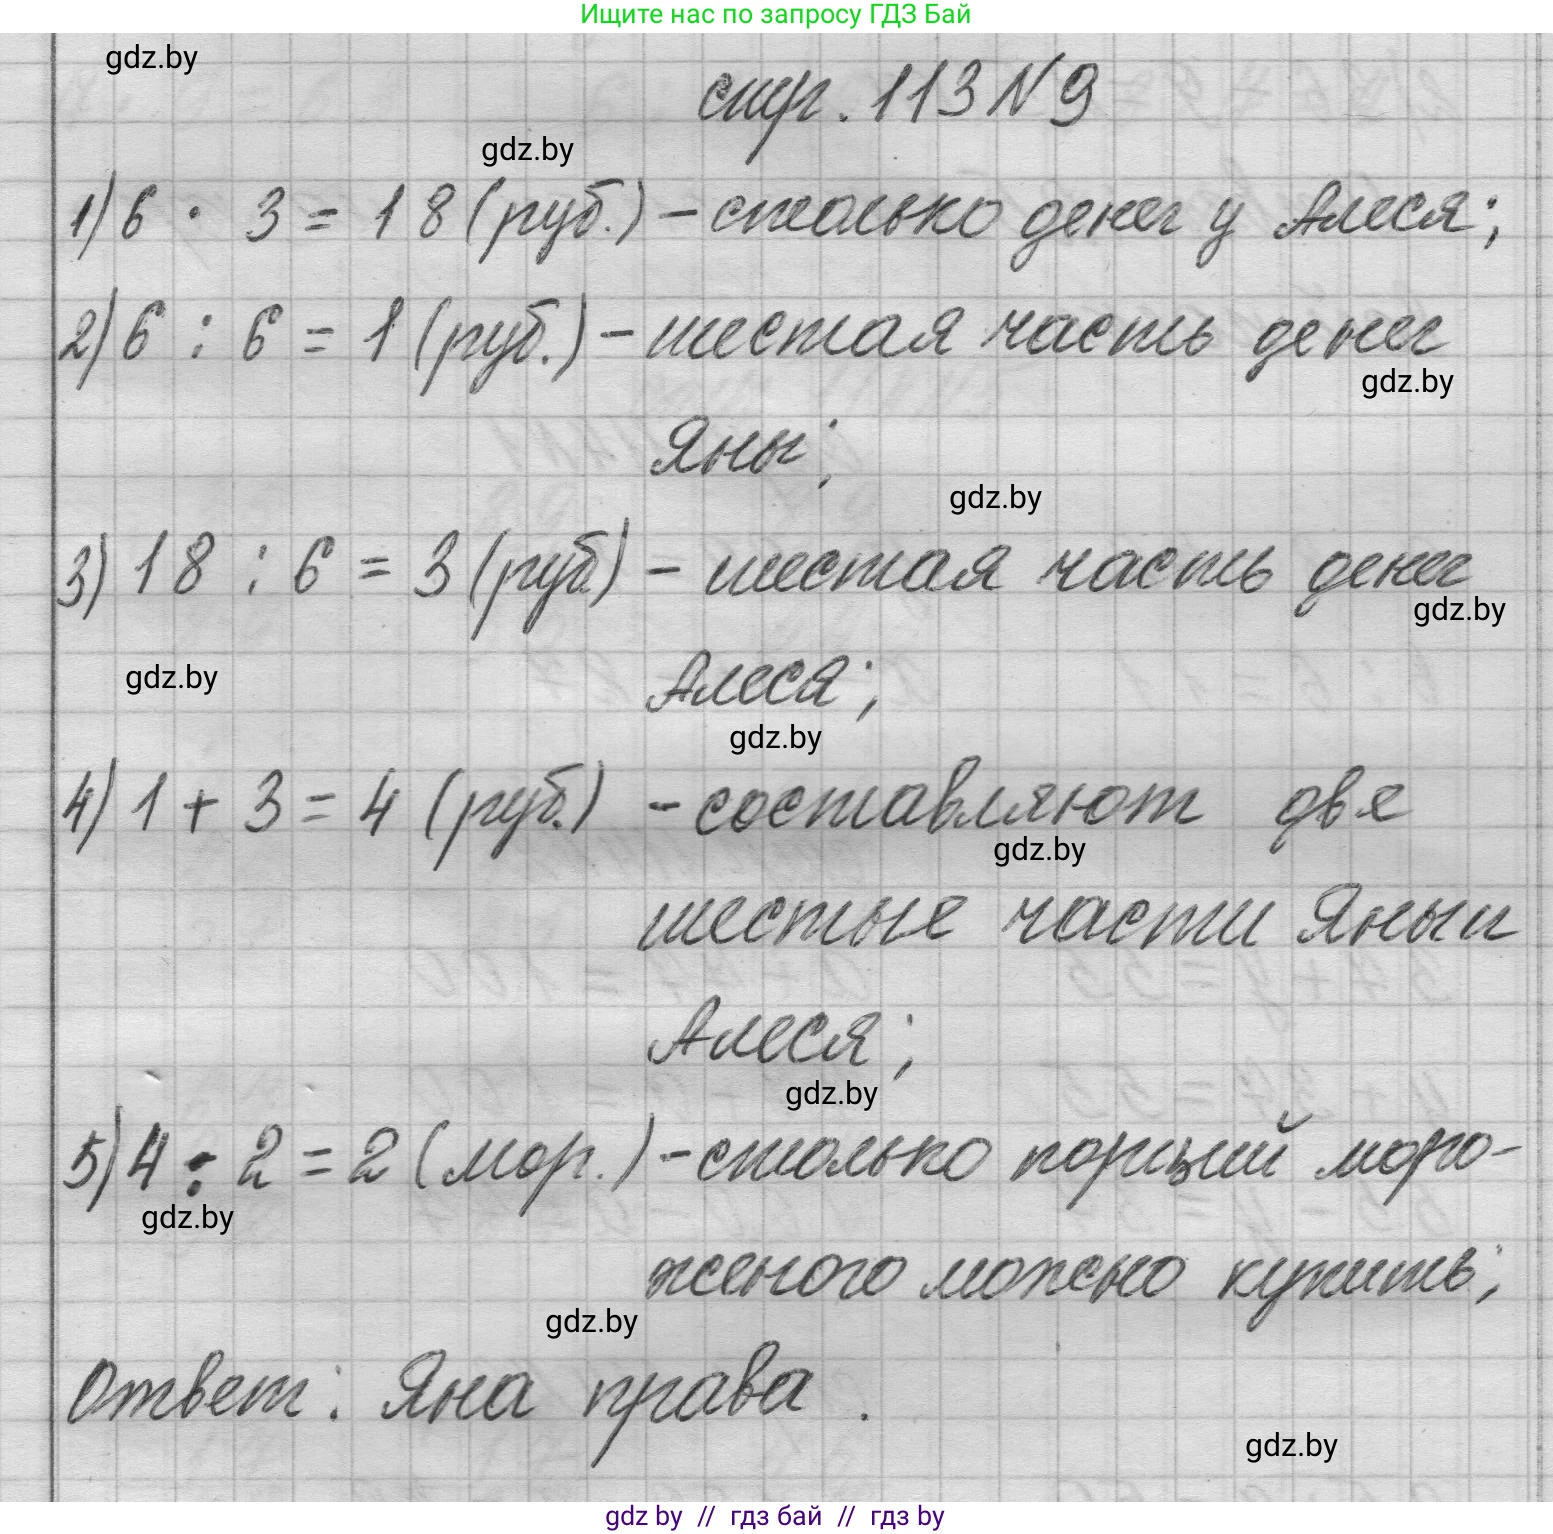 Ищите нас по запросу ГДЗ Бай
gdz.by
стр. 113 N 9
gdz.by
1) 6 · 3 = 18 (руб.) – столько денег у Алеся;
2) 6 : 6 = 1 (руб.) – шестая часть денег
gdz.by
Яны;
gdz.by
3) 18 : 6 = 3 (руб.) – шестая часть денег
gdz.by
gdz.by
Алеся;
gdz.by
4) 1 + 3 = 4 (руб.) – составляют две
gdz.by
шестые части Яны и
Алеся;
gdz.by
5) 4 : 2 = 2 (мор.) – столько порций моро-
gdz.by
женого можно купить;
gdz.by
Ответ: Яна права.
gdz.by
gdz by // гдз бай // гдз by